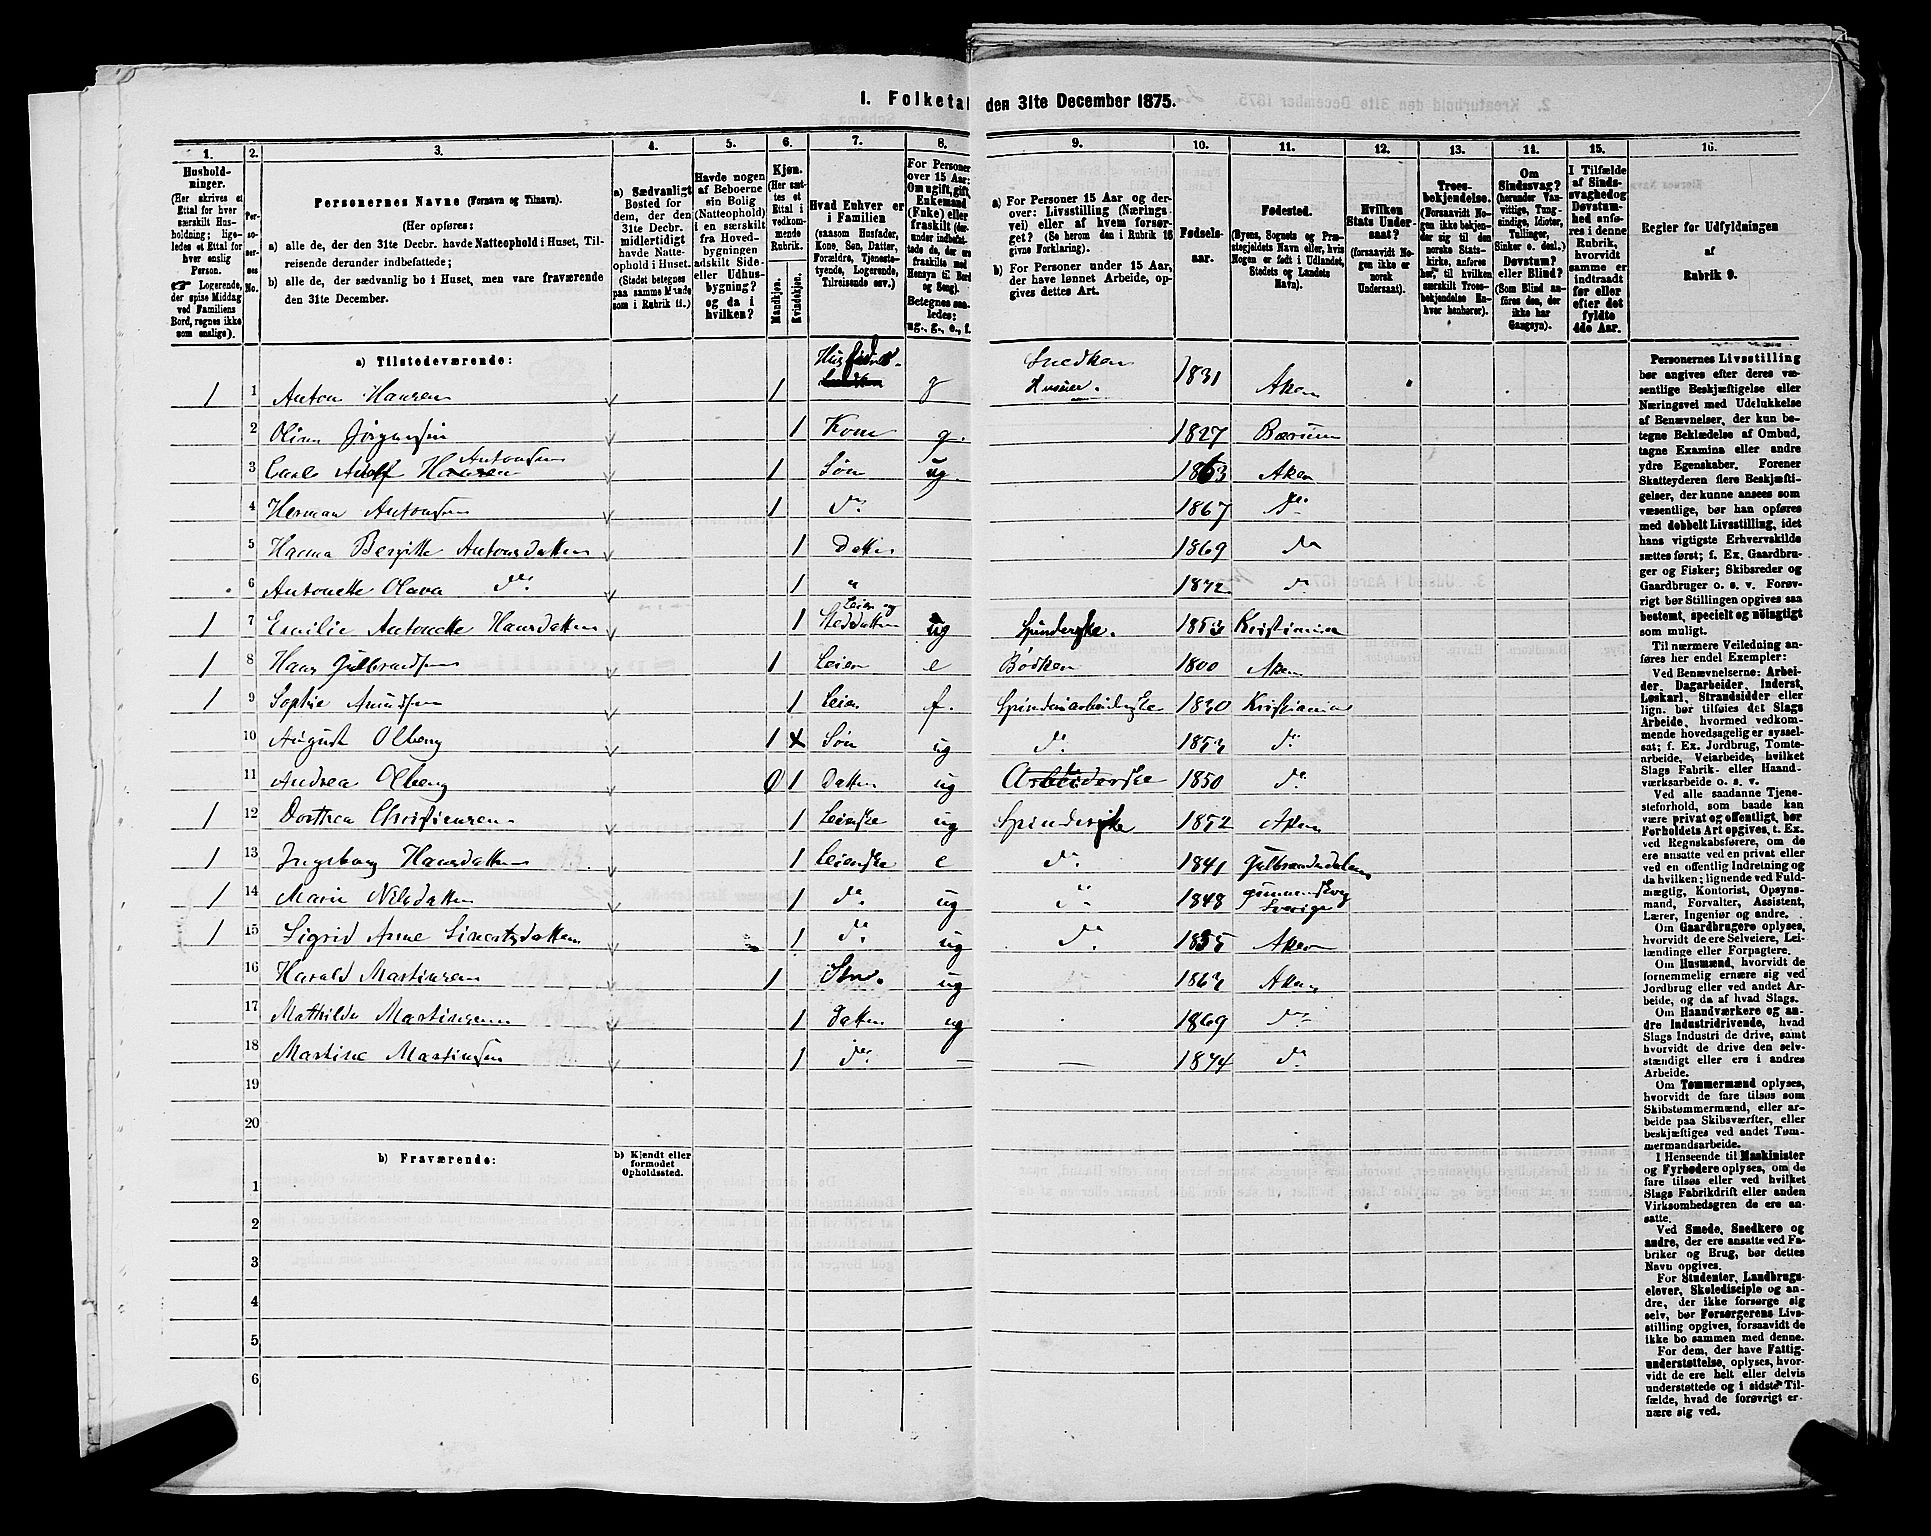 1. Folketal den 31te December 1875.
1. 2. 3. 4. 5. 6. 7. 8. 9. 10. 11. 12. 13. 14. 15. 16.
Hushold-
ninger.
(Her skrives et
Ettal for hver
særskilt Hus-
holdning; lige-
ledes et Ettal for
hver enslig
Person.
☛ Logerende,
der spise Middag
ved Familiens
Bord, regnes ikke
som enslige).
Per-
so-
ner-
nes
No.
Personernes Navne (Fornavn og Tilnavn).
(Her opføres:
a) alle de, der den 31te Decbr. havde Natteophold i Huset, Til-
reisende derunder indbefattede;
b) alle de, der sædvanlig bo i Huset, men vare fraværende
den 31te December.
a) Sædvanligt
Bosted for
dem, der den
31te Decbr.
midlertidigt
havde Natte-
ophold i Huset.
(Stedet betegnes
paa samme Maade
som i Rubrik 11.)
Havde nogen
af Beboerne
sin Bolig
(Natteophold)
i en særskilt
fra Hoved-
bygningen
adskilt Side-
eller Udhus-
bygning?
og da i
hvilken?
Kjøn.
(Her sæt-
tes et
Ettal i
vedkom-
mende
Rubrik.
Mandkjøn.
Kvindekjøn.
Hvad Enhver er
i Familien
(saasom Husfader,
Kone, Søn, Datter,
Forældre, Tjeneste-
tyende, Logerende,
Tilreisende osv.)
For Personer
over 15 Aar:
Om ugift, gift,
Enkemand
(Enke) eller
fraskilt (der-
under indbefat-
tede de, der ere
fraskilte med
Hensyn til Bord
og Seng).
Betegnes saa-
ledes:
ug., g., e., f.
a) For Personer 15 Aar og der-
over: Livsstilling (Nærings-
vei) eller af hvem forsør-
get? (Se herom den i Rubrik 16
givne Forklaring).
b) For Personer under 15 Aar,
der have lønnet Arbeide, op-
gives dettes Art.
Fødsels-
aar.
Fødested.
(Byens, Sognets og Præ-
stegjeldets Navn eller, hvis
Nogen er født i Udlandet,
Stedets og Landets
Navn).
Hvilken
Stats Under-
saat?
(forsaavidt No-
gen ikke er
norsk
Undersaat).
Troes-
bekjendelse.
(Forsaavidt No-
gen ikke bekjen-
der sig til den
norske Stats-
kirke, anføres
her, til hvilken
særskilt Troes-
bekjendelse En-
hver henhører).
Om
Sindssvag?
(herunder Van-
vittige, Tung-
sindige, Idioter,
Tullinger,
Sinker o. desl.)
Døvstum?
eller Blind?
(Som Blind an-
føres den, der
ikke har
Gangsyn).
I Tilfælde
af Sinds-
svaghed og
Døvstum-
hed anfø-
res i denne
Rubrik,
hvorvidt
samme er
indtraadt
før eller
efter det
fyldte
4de Aar.
Regler for Udfyldningen
af
Rubrik 9.
a) Tilstedeværende:
1 1 Anton Hansen 1 Husfader g Snedker Huseier. 1831 Aker
2 Oline Jørgensen 1 Kone g. 1827 Bærum
3 Carl Adolf Hansen Antonsen 1 Søn ug 1863 Aker
4 Herman Antonsen 1 do. 1867 do
5 Hanna Bergitte Antonsdatter 1 Datter 1869 do
6 Antonette Olava do. 1 " 1872 do
1 7 Emilie Antonette Hansdatter 1 Leier og Steddatter ug Spinderske. 1853 Kristiania
1 8 Hans Gulbrandsen 1 Leier e Bødker 1800 Aker
1 9 Sophie Amundsen 1 Leier f. Spinderiarbeiderske 1830 Kristiania
10 August Olberg 1 Søn ug do. 1853 do.
11 Andrea Olberg 0 1 Datter ug Arbeiderske 1850 do.
1 12 Dorthea Christiansen 1 Leierske ug Spinderske 1852 Aker
1 13 Ingeborg Hansdatter 1 Leierske e do. 1841 Gulbrandsdalen
1 14 Marie Nilsdatter 1 do. ug " 1848 Sverige
1 15 Sigrid Anne 1 do. ug do. 1855 Aker
16 Harald Martinsen 1 Søn. ug 1863 Aker
17 Mathilde Martinsen 1 Datter ug 1869 do.
18 Martine Martinsen 1 do. — — 1874 do
19
20
b) Fraværende:
b) Kjendt eller
formodet
Opholdssted.
1
2
3
4
5
6
Personernes Livsstilling
bør angives efter deres væ-
sentlige Beskjæftigelse eller
Næringsvei med Udelukkelse
af Benævnelser, der kun be-
tegne Beklædelse af Ombud,
tagne Examina eller andre
ydre Egenskaber. Forener
Skatteyderen flere Beskjæfti-
gelser, der kunne ansees som
væsentlige, bør han opføres
med dobbelt Livsstilling, idet
hans vigtigste Erhvervskilde
sættes først; f. Ex. Gaardbru-
ger og Fisker; Skibsreder og
Gaardbruger o. s. v. Forøv-
rigt bør Stillingen opgives saa
bestemt, specielt og nøiagtigt
som muligt.
Til nærmere Veiledning an-
føres her endel Exempler:
Ved Benævnelserne: Arbei-
der, Dagarbeider, Inderst,
Løskarl, Strandsidder eller
lign. bør tilføies det Slags
Arbeide, hvormed vedkom-
mende hovedsagelig er syssel-
sat; f. Ex. Jordbrug, Tomte-
arbeide, Veiarbeide, hvilket
Slags Fabrik- eller Haand-
værksarbeide o. s. v.
Ved alle saadanne Tjene-
steforhold, som baade kan
være privat og offentligt, bør
Forholdets Art opgives, t. Ex.
ved Regnskabsførere, om de
ere ansatte ved en privat eller
ved en offentlig Indretning og
da hvilken; lignende ved Fuld-
mægtig, Kontorist, Opsyns-
mand, Forvalter, Assistent,
Lærer, Ingeniør og andre.
Om Gaardbrugere oplyses,
hvorvidt de ere Selveiere, Lei-
lændinge eller Forpagtere.
Om Husmænd, hvorvidt de
fornemmelig ernære sig ved
Jordbrug eller ved andet Ar-
beide, og da af hvad Slags.
Om Haandværkere og an-
dre Industridrivende, hvad
Slags Industri de drive, samt
hvorvidt de drive den selv-
stændigt eller ere i andres
Arbeide.
Om Tømmermænd oplyses,
hvorvidt de fare tilsøs som
Skibstømmermænd, eller ar-
beide paa Skibsværfter, eller
beskjæftiges ved andet Tøm-
mermandsarbeide.
I Henseende til Maskinister
og Fyrbødere oplyses, om de
fare tilsøs eller ved hvilket
Slags Fabrikdrift eller anden
Virksomhedsgren de ere an-
satte.
Ved Smede, Snedkere og
andre, der ere ansatte ved Fa-
briker og Brug, bør dettes
Navn opgives.
For Studenter, Landbrugs-
elever, Skoledisciple og an-
dre, der ikke forsørge sig
selv, bør Forsørgerens Livs-
stilling opgives, forsaavidt de
ikke bo sammen med denne.
For dem, der have Fattig-
understøttelse, oplyses, hvor-
vidt de ere helt eller delvis
understøttede og i sidste Til-
fælde, hvad de forøvrigt er-
nære sig ved.